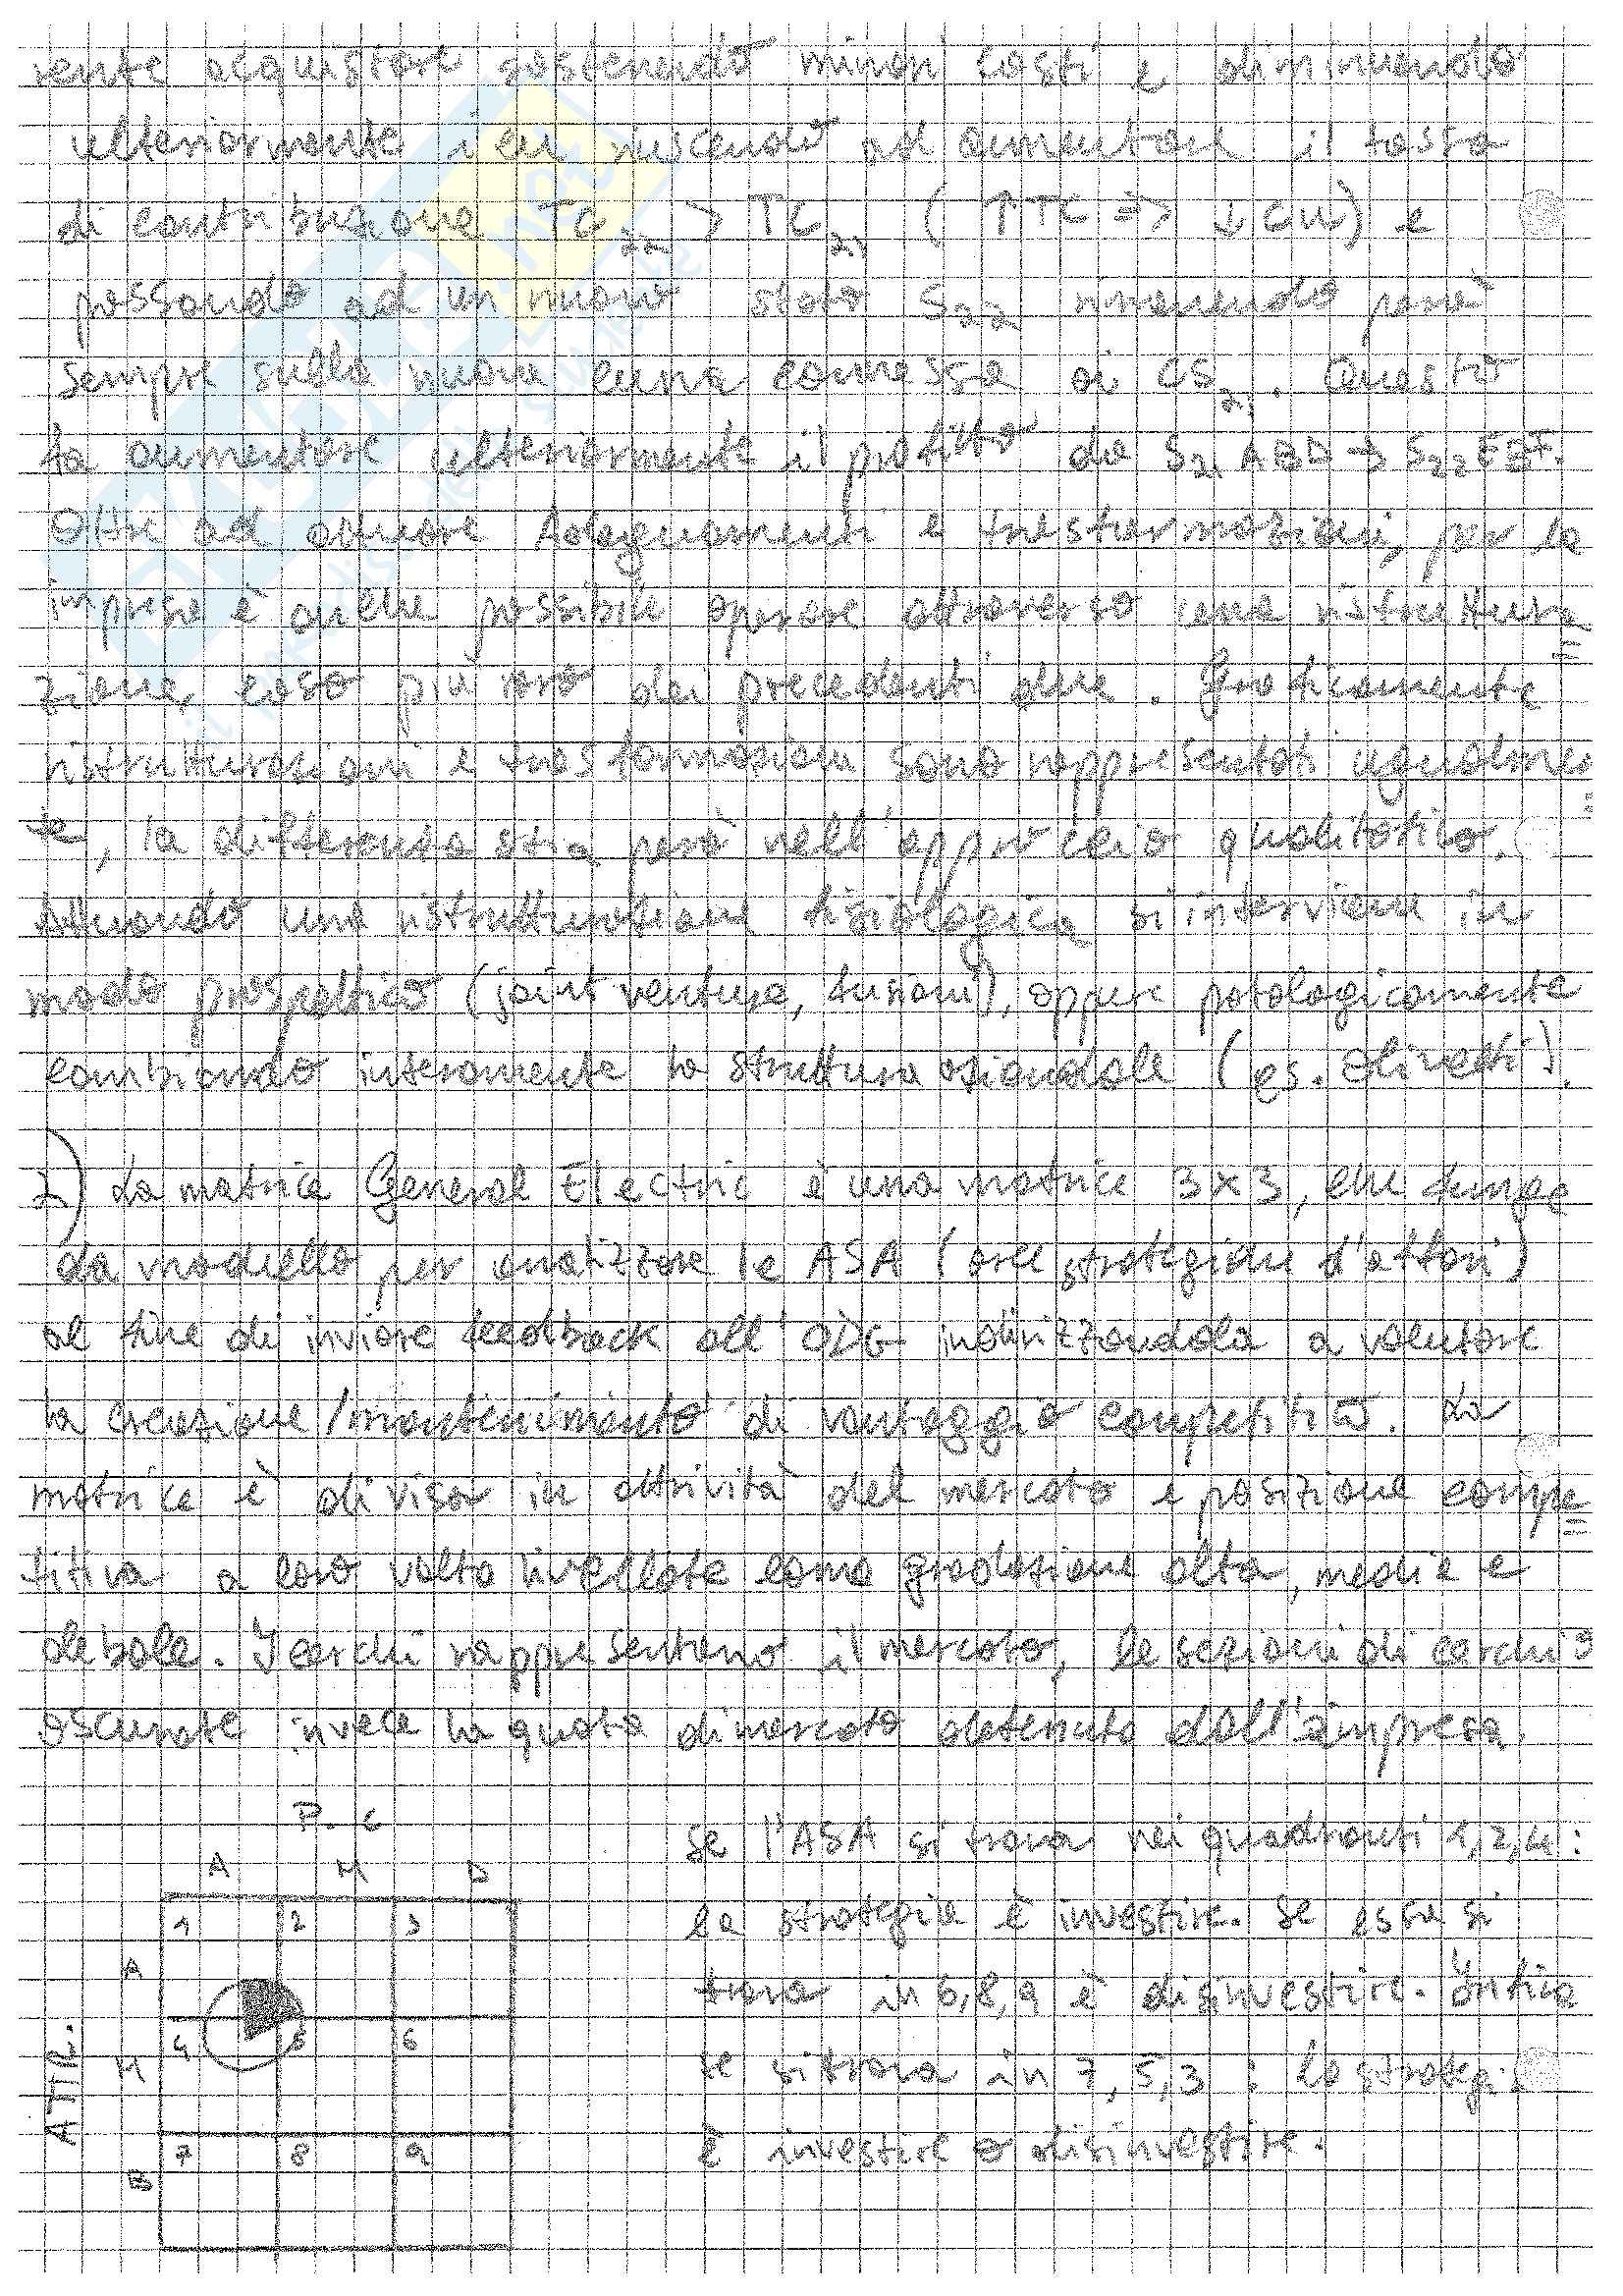 rente acquistare sostenendo minori costi e diminuendo
ulteriormente i cu riuscendo ad aumentare il tasso
di contribuzione TC22 > TC21 (↑TC => ↓CU) e
passando ad un nuovo stato S22 rimanendo però
sempre sulla nuova curva connessa di CS21. Questo
fa aumentare ulteriormente il profitto da S21ABD → S22EBF.
Oltre ad attuare Adeguamenti e trasformazioni, per la
impresa è anche possibile operare attraverso una ristruttura
zione, caso più raro dei precedenti due. Graficamente
ristrutturazioni e trasformazioni sono rappresentati ugualmen
te, la differenza stia però nell'approccio qualitativo.
Attuando una ristrutturazione fisiologica si interviene in
modo prospettico (joint venture, fusioni), oppure patologicamente
cambiando interamente la struttura aziendale (es. Olivetti).
2) La matrice General Electric è una matrice 3x3, che funge
da modello per analizzare le ASA (aree strategiche d'affari)
al fine di inviare feedback all'ODG indirizzandola a valutare
la creazione/mantenimento di vantaggio competitivo. La
matrice è divisa in attività del mercato e posizione compe
titiva a loro volta livellate come gradazione alta, media e
debole. I cerchi rappresentano il mercato, le sezioni di cerchio
oscurate invece la quota di mercato detenuta dall'impresa.
P. C
A M D
ATTR.
A
M
B
1 2 3
4 5 6
7 8 9
Se l'ASA si trova nei quadranti 1,2,4:
la strategia è investire. Se essa si
trova in 6,8,9 è disinvestire. Critica
se si trova in 7,5,3: la strategi
è investire o disinvestire.